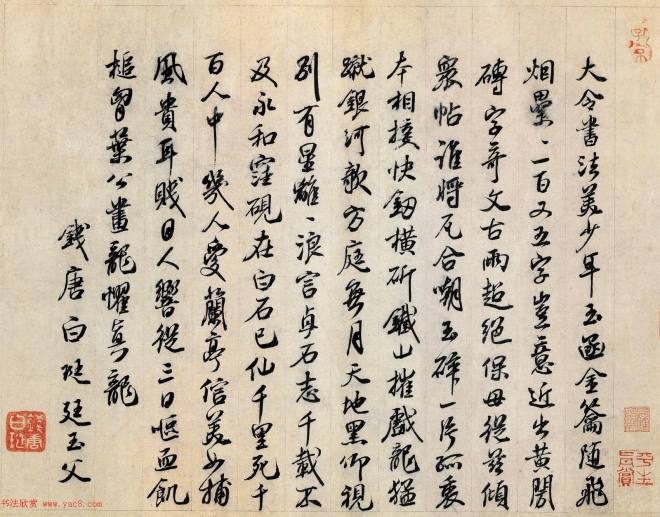 大令書法美少年玉函金籥随飛
烟纍〻一百又五字豈意近出黄閍
磚字奇文古兩超絕保母從茲傾
衆帖誰將瓦合嘲玉碎一片孤裏
本相接快劒橫斫鐵山摧戲龍猛
蹴銀河欹方庭無月天地黑仰視
星離〻浪言貞石志千載不
及永和窪硯在白石已仙千里死千
百人中幾人愛蘭亭信美如捕
風貴耳賤目人響從三日嘔血飢
槌胷葉公畫龍懼真龍
錢唐白珽廷玉父
錢唐白珽
书法欣赏 www.yac8.com